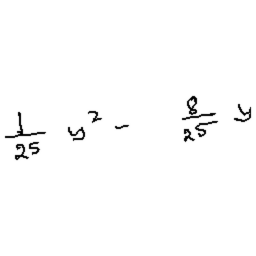 \frac{1}{25} y^2 - \frac{8}{25} y